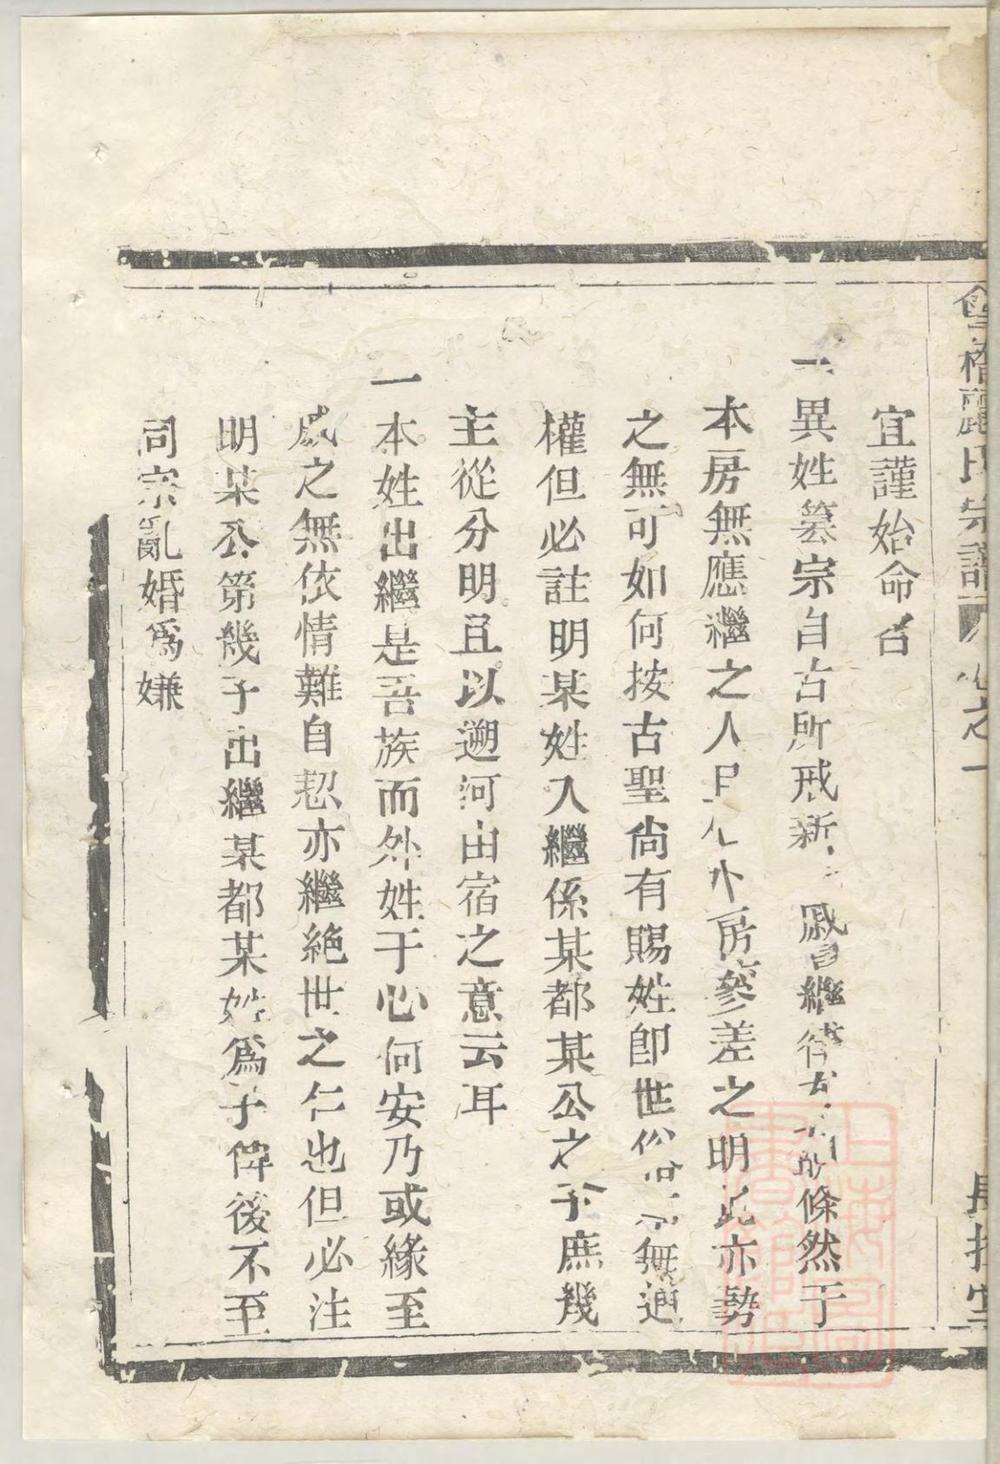 宜謹始命名
一異姓篡宗自古所戒新 戚 繼 條然于
本房無應繼之人 房參差之明 亦勢
之無可如何按古聖尚有賜姓即世俗 無通
權但必註明某姓入繼係某都某公之子庶幾
主從分明且以遡河由宿之意云耳
一本姓出繼是吾族而外姓于心何安乃或緣至
戚之無依情難自恝亦繼絶世之仁也但必注
明某公第幾子出繼某都某姓爲子俾後不至
同宗亂婚爲嫌
氏宗譜 卷之一